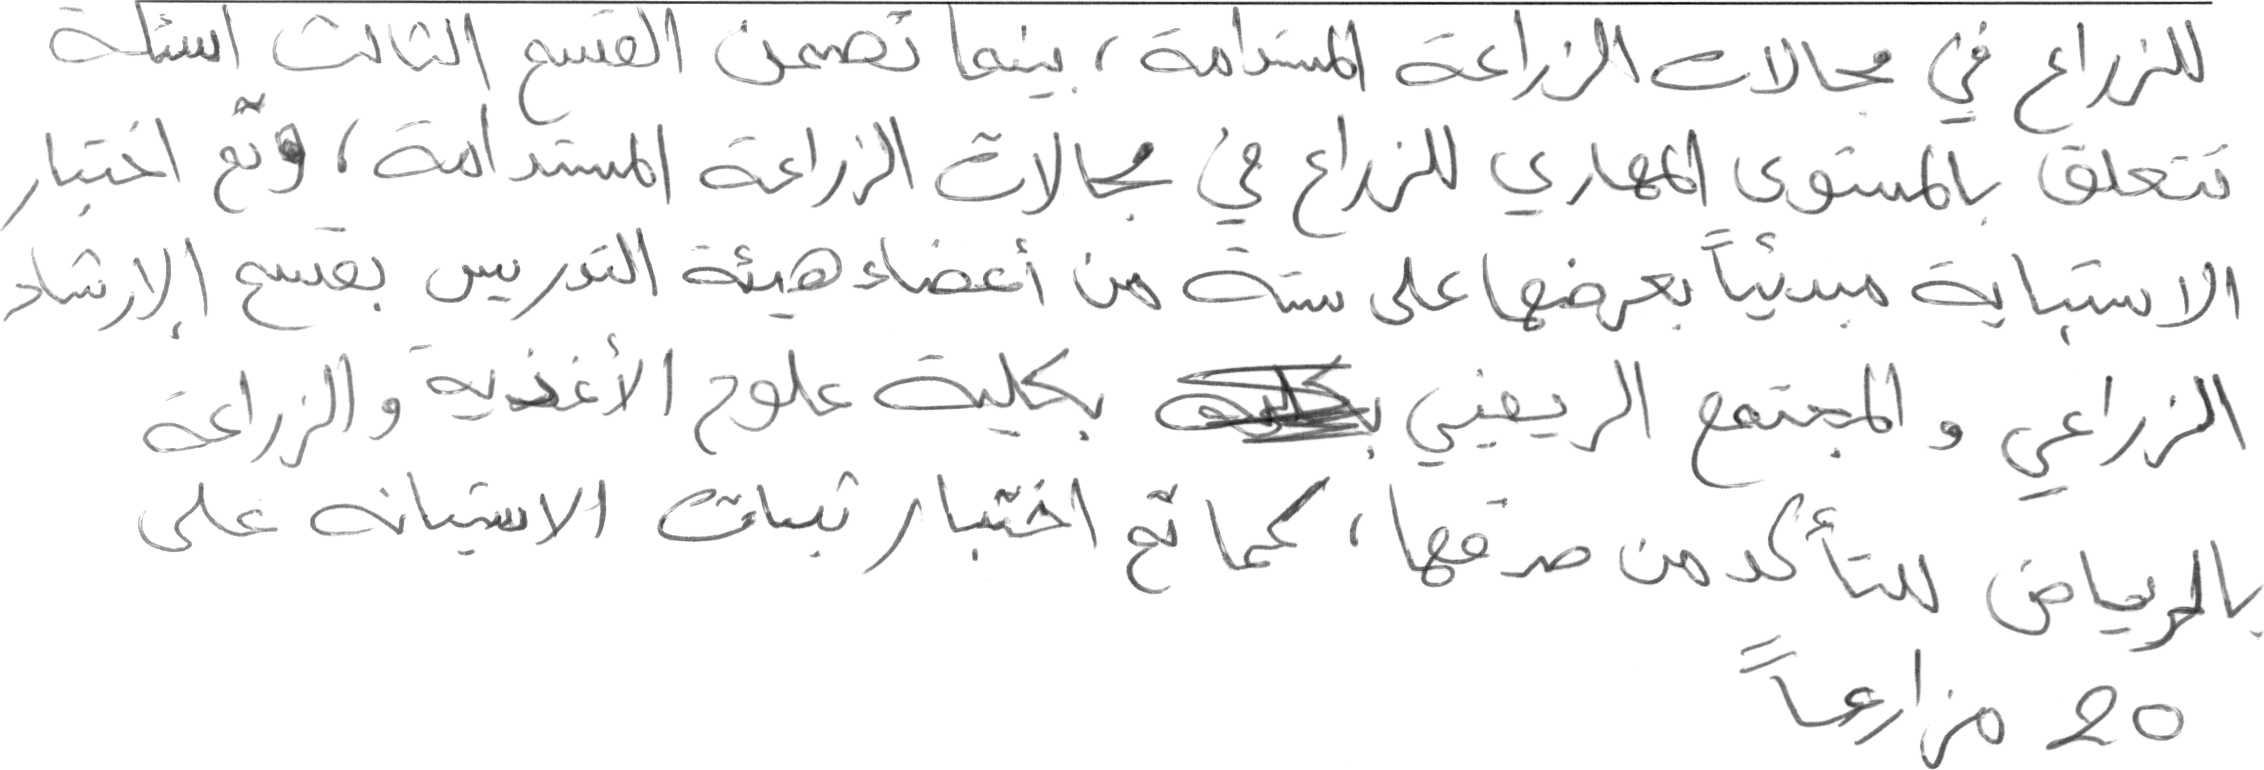 للزراع في مجالات الزراعة المستدامة، بينما تضمن القسم الثالث اسئلة
تتعلق بالمستوى المهاري للزراع في مجالات الزراعة المستدامة، وتم اختبار
الاستبانة مبدئياً بعرضها على ستة من أعضاء هيئة التدريس بقسم الإرشاد
الزراعي والمجتمع الريفي بكلية علوم الأغذية والزراعة
بالرياض للتأكد من صدقها، كما تم اختبار ثبات الاستبانه على
20 مزارعاً